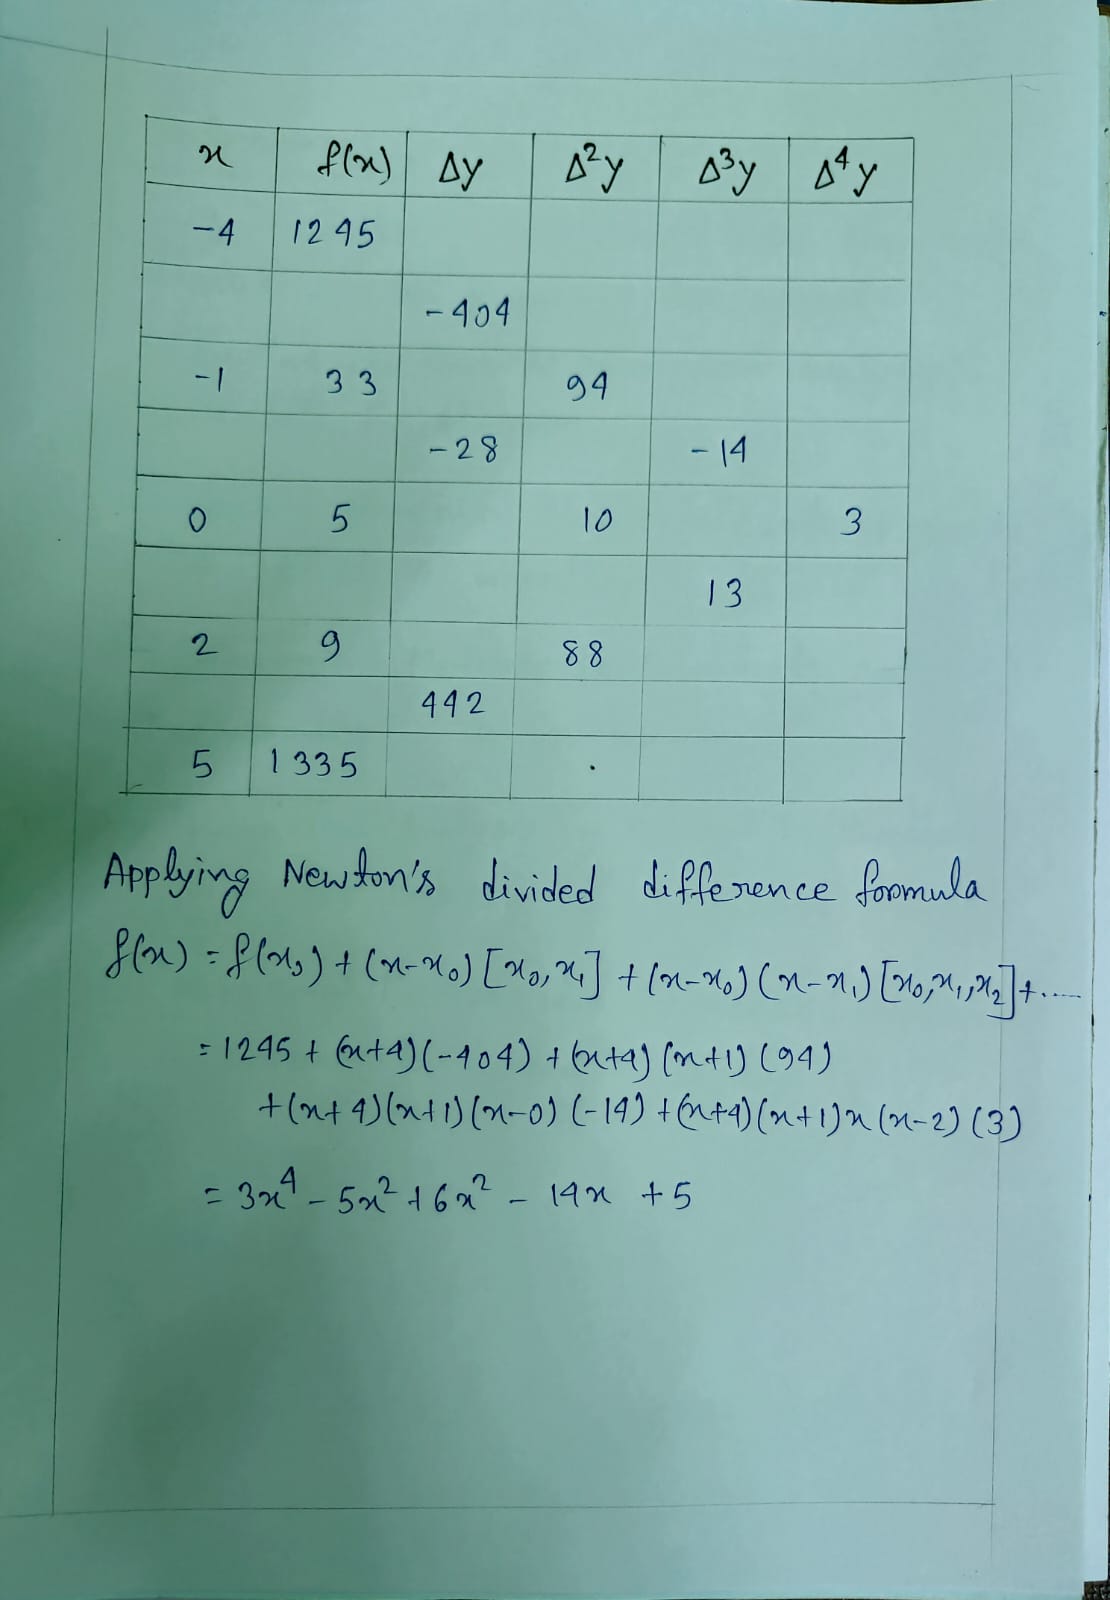 x f(x) Δy Δ²y Δ³y Δ⁴y
-4 1245
-404
-1 33 94
-28 -14
0 5 10 3
13
2 9 88
442
5 1335
Applying Newton's divided difference formula
f(x) = f(x₀) + (x-x₀) [x₀, x₁] + (x-x₀) (x-x₁) [x₀, x₁, x₂] + .....
= 1245 + (x+4)(-404) + (x+4) (x+1) (94)
+ (x+4)(x+1)(x-0) (-14) + (x+4)(x+1)x(x-2) (3)
= 3x⁴ - 5x² + 6x² - 14x + 5